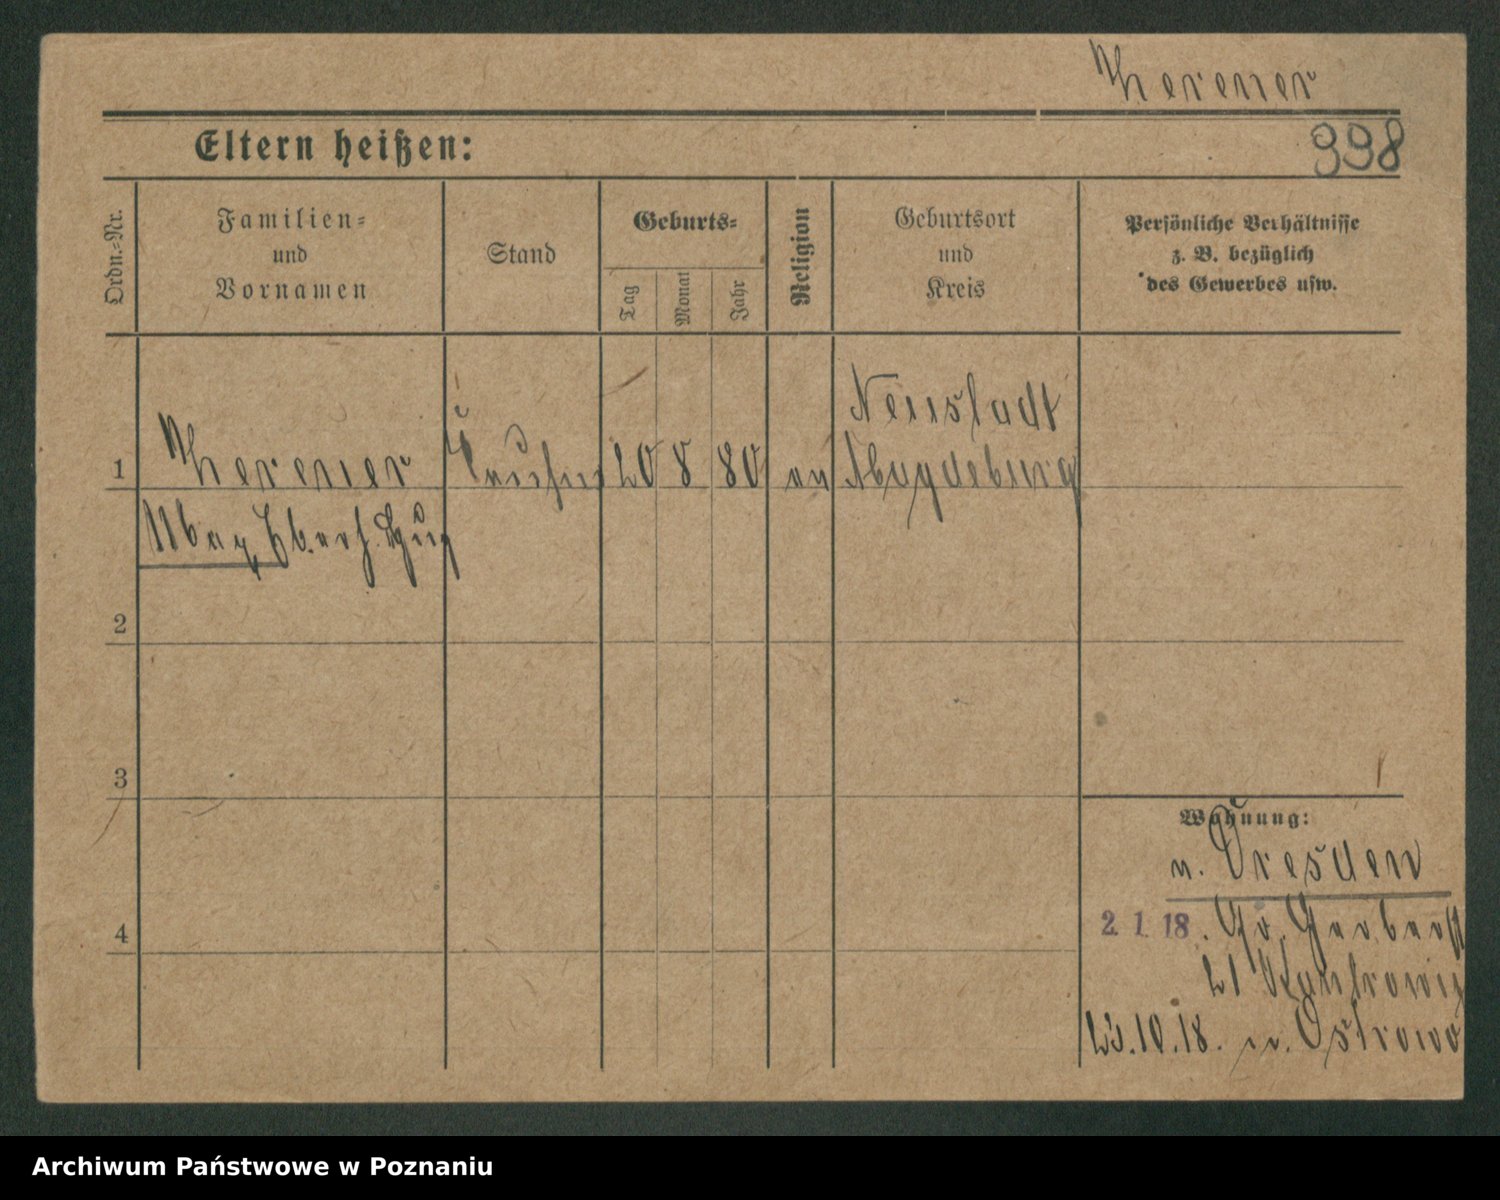 Werener
998
Eltern heißen:
Ordn.-Nr.
Familien-
und
Vornamen
Stand
Geburts-
Tag
Monat
Jahr
Religion
Geburtsort
und
Kreis
Persönliche Verhältnisse
z. B. bezüglich
des Gewerbes usw.
Neustadt
1 Werener 20 8 80 ev Magdeburg
Max Eberh. Hug
2
3
4
Wohnung:
n. Dresden
2. 1. 18. Gr. Gerberst
21
23.10.18. n. Ostrowo
Archiwum Państwowe w Poznaniu